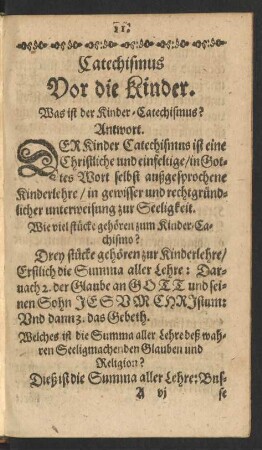 11.
Catechismus
Vor die Kinder.
Was ist der Kinder-Catechismus?
Antwort.
DER Kinder Catechismus ist eine
Christliche und einfeltige/in Got-
tes Wort selbst außgesprochene
Kinderlehre/ in gewisser und rechtgründ-
licher unterweisung zur Seeligkeit.
Wie viel stücke gehören zum Kinder-Ca-
chismo?
Drey stücke gehören zur Kinderlehre/
Erstlich die Summa aller Lehre: Dar-
nach 2. der Glaube an GOTT und sei-
nen Sohn JESVM CHRIstum:
Vnd dann 3. das Gebeth.
Welches ist die Summa aller Lehre deß wah-
ren Seeligmachenden Glauben und
Religion?
Dieß ist die Summa aller Lehre: Bus-
A vj se